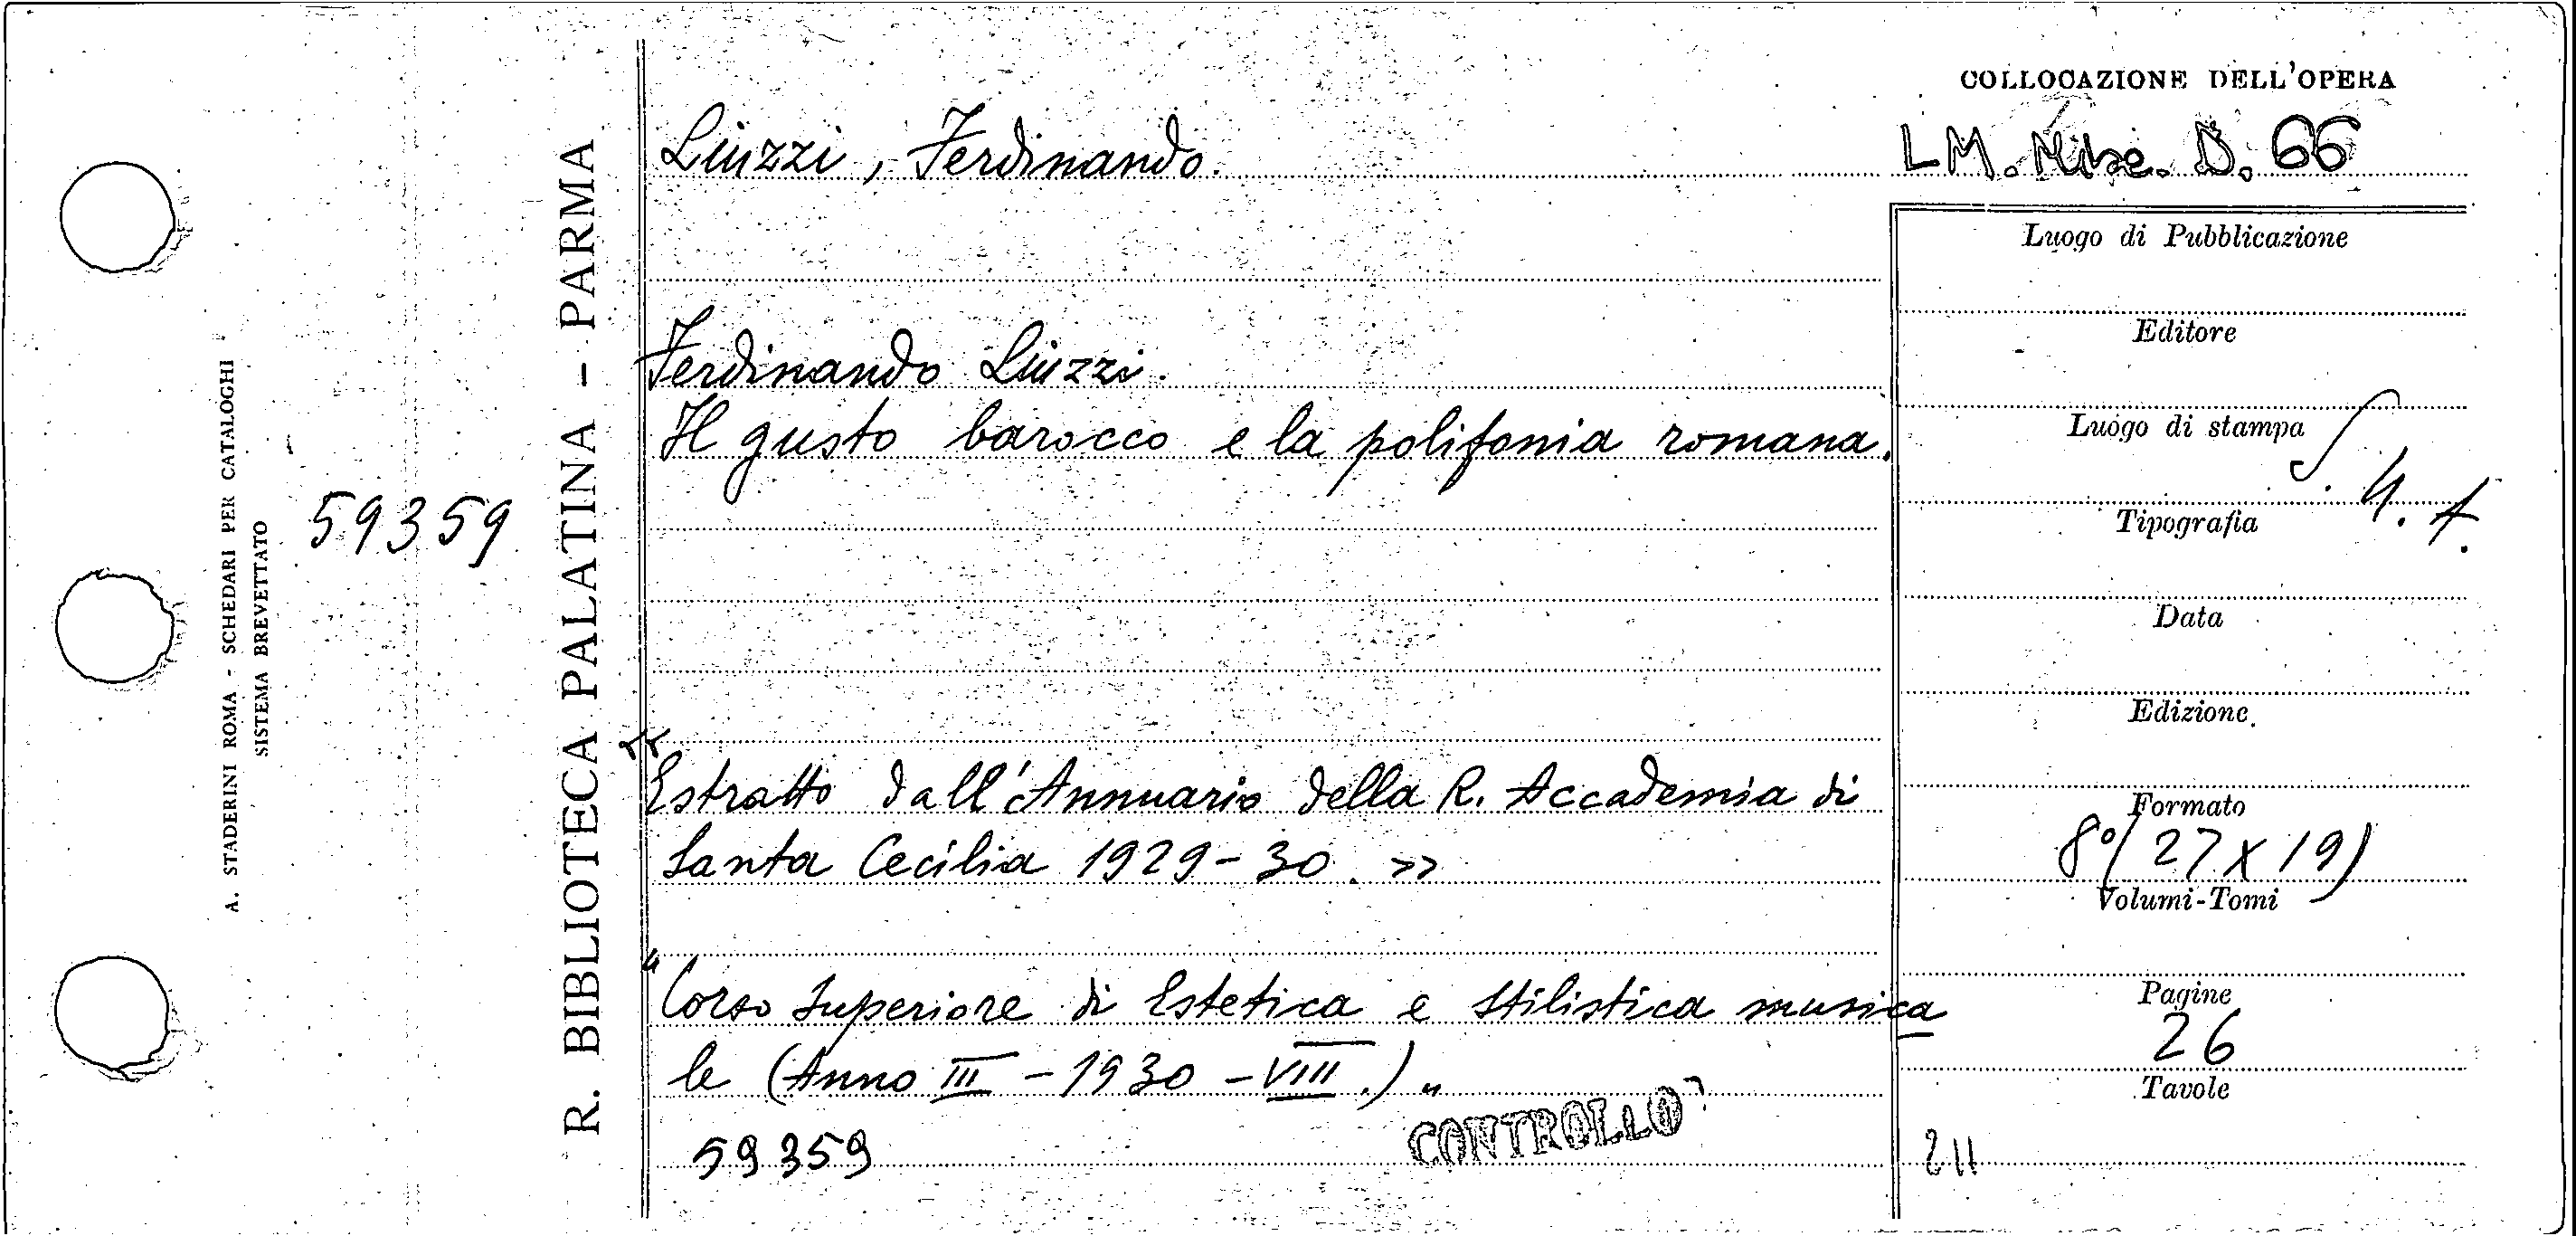 A. STADERINI ROMA - SCHEDARI PER CATALOGHI
SISTEMA BREVETTATO
59359
R. BIBLIOTECA PALATINA - PARMA
Liuzzi, Ferdinando.
Ferdinando Liuzzi.
Il gusto barocco e la polifonia romana.
«Estratto dall'Annuario della R. Accademia di
Santa Cecilia 1929-30. »
"Corso Superiore di Estetica e Stilistica musica
le (Anno III - 1930 - VIII.)"
59359
CONTROLLO
COLLOCAZIONE DELL'OPERA
LM. Misc. D. 66
Luogo di Pubblicazione
Editore
Luogo di stampa
Tipografia
Data
Edizione
Formato
8º (27 X 19)
Volumi-Tomi
Pagine
26
Tavole
211